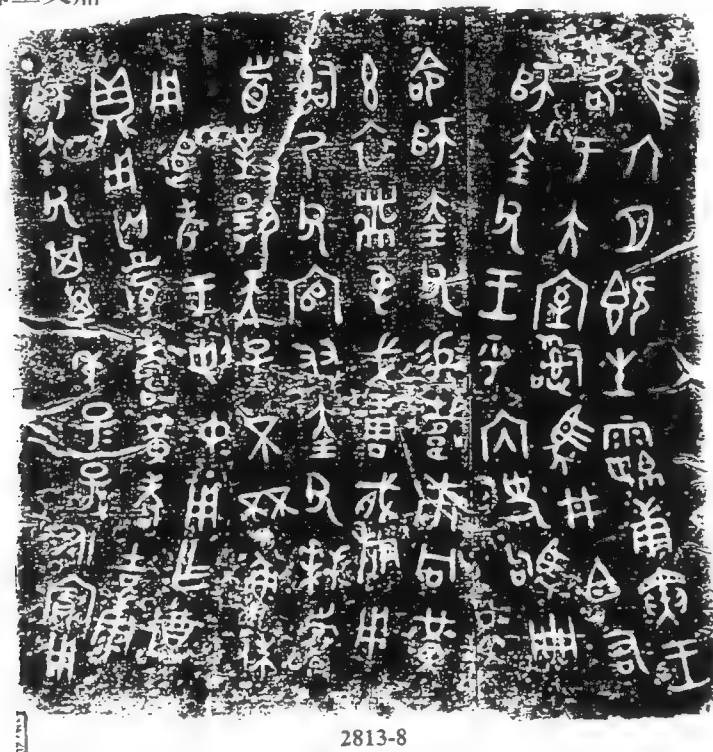 隹六月既生霸庚寅王
各于大室𤔲馬井白右
師奎父王乎内史駒冊
命師奎父易市冋黃
玄衣黹屯戈琱㦸旂用
𤔲乃父官友奎父拜𩒨
首對揚天子不魯休
用追孝于剌中用乍尊
鼎用匄眉壽黃耇吉康
師奎父其萬年子子孫永寶用
2813-8